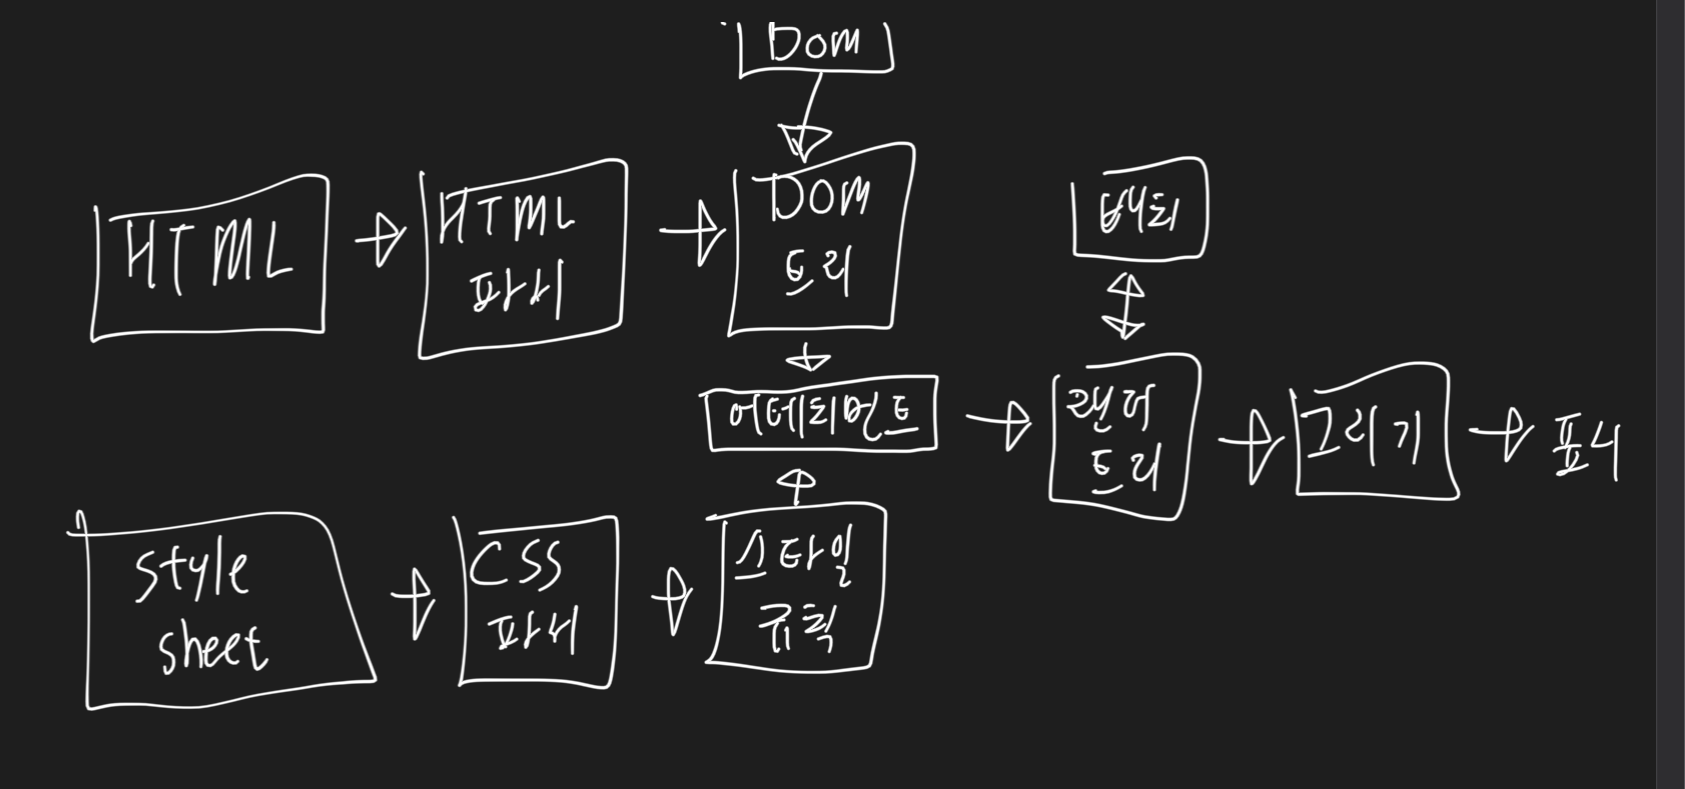 DOM
HTML
HTML
파서
DOM
트리
배치
어태치먼트
랜더
트리
그리기
표시
style
sheet
CSS
파서
스타일
규칙